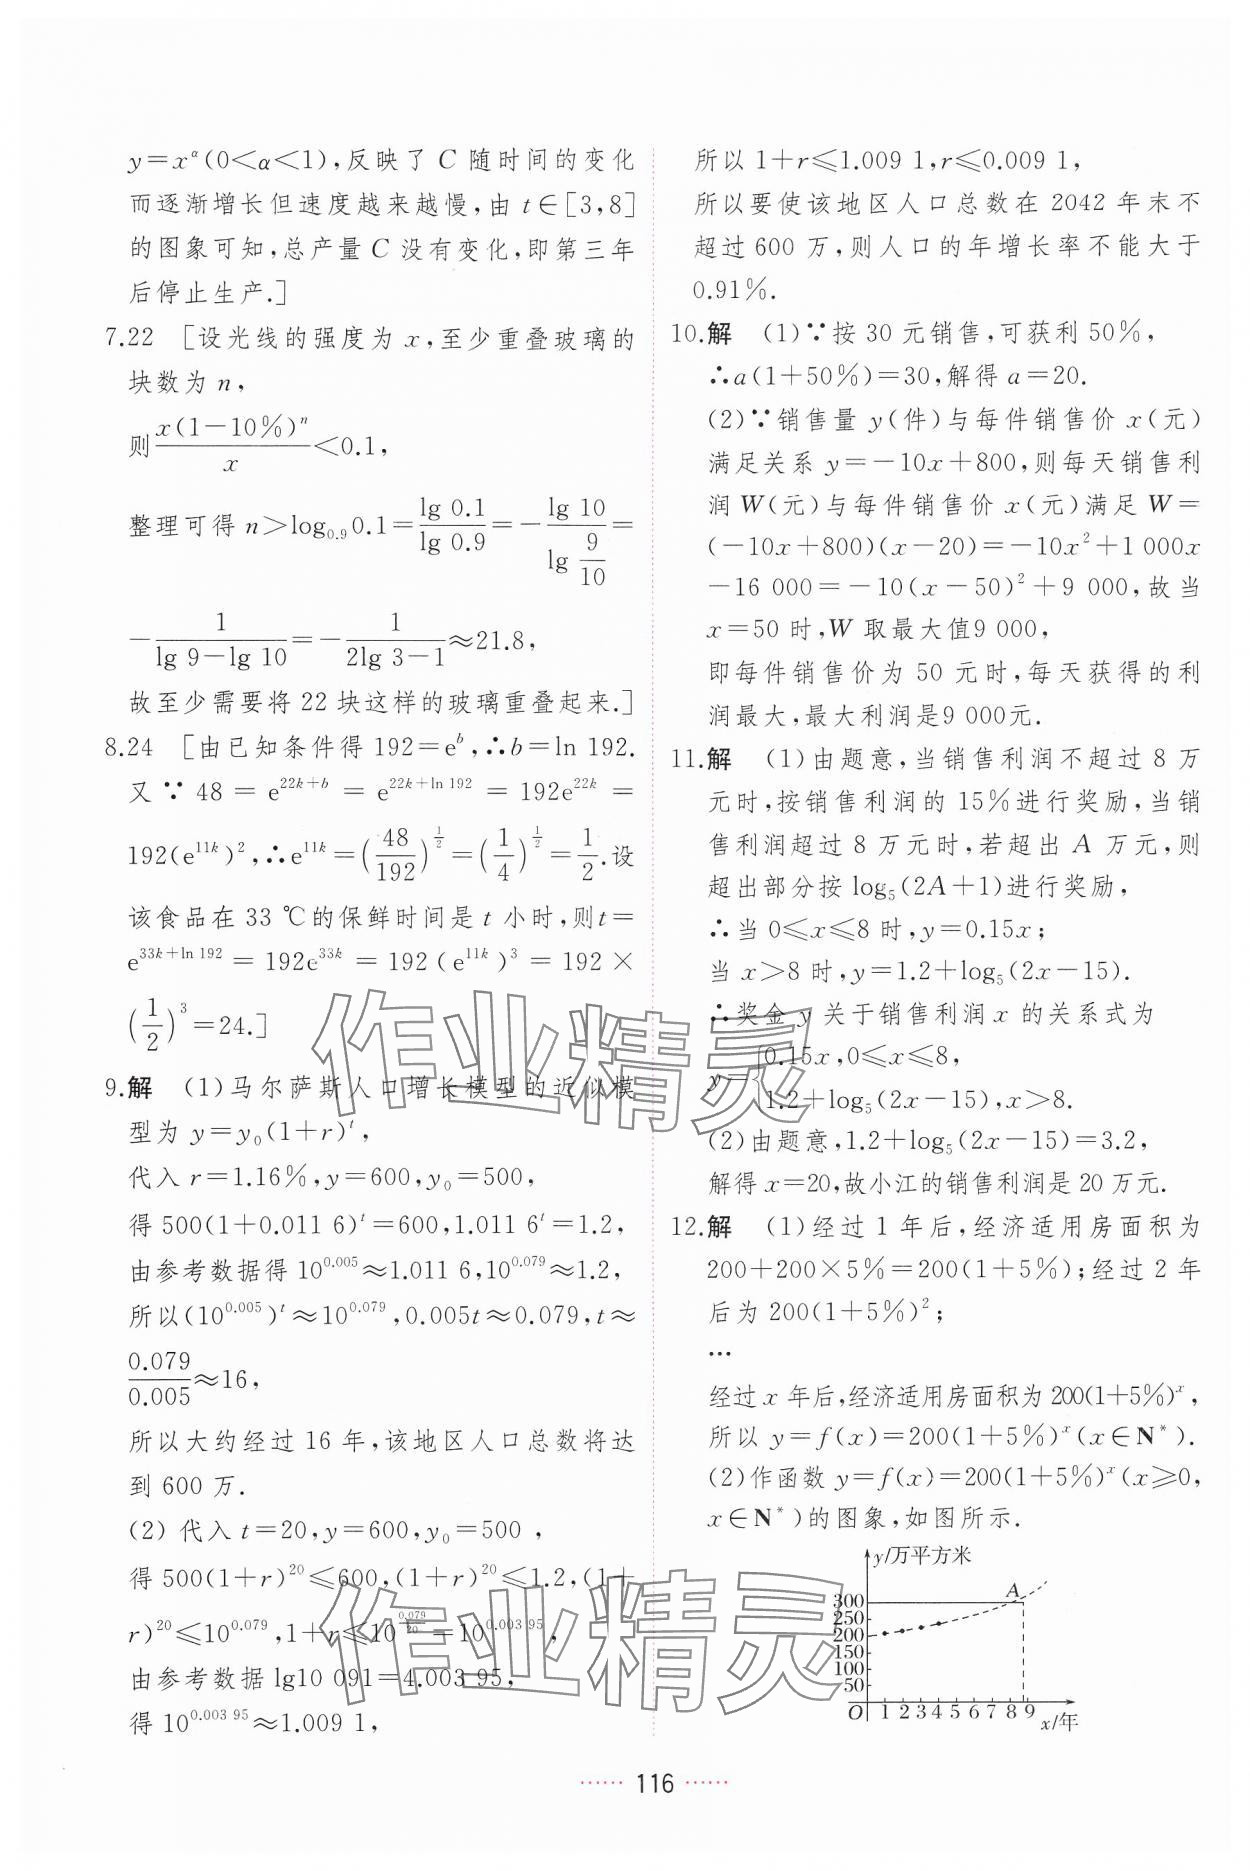 y=x^α(0<α<1),反映了 C 随时间的变化
而逐渐增长但速度越来越慢,由 t∈[3,8]
的图象可知,总产量 C 没有变化,即第三年
后停止生产.]
7.22 [设光线的强度为 x,至少重叠玻璃的
块数为 n,
则 x(1-10%)^n/x<0.1,
整理可得 n>log_0.9 0.1=lg 0.1/lg 0.9=-lg 10/lg (9/10)=
-1/(lg 9-lg 10)=-1/(2lg 3-1)≈21.8,
故至少需要将 22 块这样的玻璃重叠起来.]
8.24 [由已知条件得 192=e^b,∴b=ln 192.
又∵48=e^(22k+b)=e^(22k+ln 192)=192e^(22k)=
192(e^(11k))^2,∴e^(11k)=(48/192)^(1/2)=(1/4)^(1/2)=1/2.设
该食品在 33 ℃的保鲜时间是 t 小时,则t=
e^(33k+ln 192)=192e^(33k)=192(e^(11k))^3=192×
(1/2)^3=24.]
9.解 (1)马尔萨斯人口增长模型的近似模
型为 y=y₀(1+r)^t,
代入 r=1.16%,y=600,y₀=500,
得 500(1+0.011 6)^t=600,1.011 6^t=1.2,
由参考数据得 10^0.005≈1.011 6,10^0.079≈1.2,
所以(10^0.005)^t≈10^0.079,0.005t≈0.079,t≈
0.079/0.005≈16,
所以大约经过 16 年,该地区人口总数将达
到 600 万.
(2) 代入 t=20,y=600,y₀=500,
得 500(1+r)^20≤600,(1+r)^20≤1.2,(1+
r)^20≤10^0.079,1+r≤10^(0.079/20)=10^0.003 95,
由参考数据 lg10 091=4.003 95,
得 10^0.003 95≈1.009 1,
所以 1+r≤1.009 1,r≤0.009 1,
所以要使该地区人口总数在 2042 年末不
超过 600 万,则人口的年增长率不能大于
0.91%.
10.解 (1)∵按 30 元销售,可获利 50%,
∴a(1+50%)=30,解得 a=20.
(2)∵销售量 y(件)与每件销售价 x(元)
满足关系 y=-10x+800,则每天销售利
润 W(元)与每件销售价 x(元)满足 W=
(-10x+800)(x-20)=-10x²+1 000x
-16 000=-10(x-50)²+9 000,故当
x=50 时,W 取最大值9 000,
即每件销售价为 50 元时,每天获得的利
润最大,最大利润是9 000元.
11.解 (1)由题意,当销售利润不超过 8 万
元时,按销售利润的 15%进行奖励,当销
售利润超过 8 万元时,若超出 A 万元,则
超出部分按 log₅(2A+1)进行奖励,
∴当 0≤x≤8 时,y=0.15x;
当 x>8 时,y=1.2+log₅(2x-15).
∴奖金 y 关于销售利润 x 的关系式为
y={0.15x,0≤x≤8,
1.2+log₅(2x-15),x>8.
(2)由题意,1.2+log₅(2x-15)=3.2,
解得 x=20,故小江的销售利润是 20 万元.
12.解 (1)经过 1 年后,经济适用房面积为
200+200×5%=200(1+5%);经过 2 年
后为 200(1+5%)²;
…
经过 x 年后,经济适用房面积为 200(1+5%)^x,
所以 y=f(x)=200(1+5%)^x(x∈N*).
(2)作函数 y=f(x)=200(1+5%)^x(x≥0,
x∈N*)的图象,如图所示.
y/万平方米
A
300
250
200
150
100
50
O 1 2 3 4 5 6 7 8 9
x/年
作业精灵
作业精灵
······ 116 ······